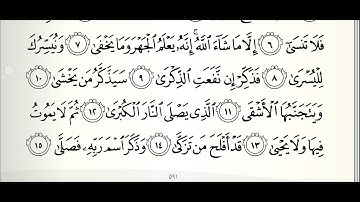 فَلَا تَنسَىٰٓ ٦ إِلَّا مَا شَآءَ ٱللَّهُۚ إِنَّهُۥ يَعْلَمُ ٱلْجَهْرَ وَمَا يَخْفَىٰ ٧ وَنُيَسِّرُكَ
لِلْيُسْرَىٰ ٨ فَذَكِّرْ إِن نَّفَعَتِ ٱلذِّكْرَىٰ ٩ سَيَذَّكَّرُ مَن يَخْشَىٰ ١٠
وَيَتَجَنَّبُهَا ٱلْأَشْقَى ١١ ٱلَّذِى يَصْلَى ٱلنَّارَ ٱلْكُبْرَىٰ ١٢ ثُمَّ لَا يَمُوتُ
فِيهَا وَلَا يَحْيَىٰ ١٣ قَدْ أَفْلَحَ مَن تَزَكَّىٰ ١٤ وَذَكَرَ ٱسْمَ رَبِّهِۦ فَصَلَّىٰ ١٥
٥٩١